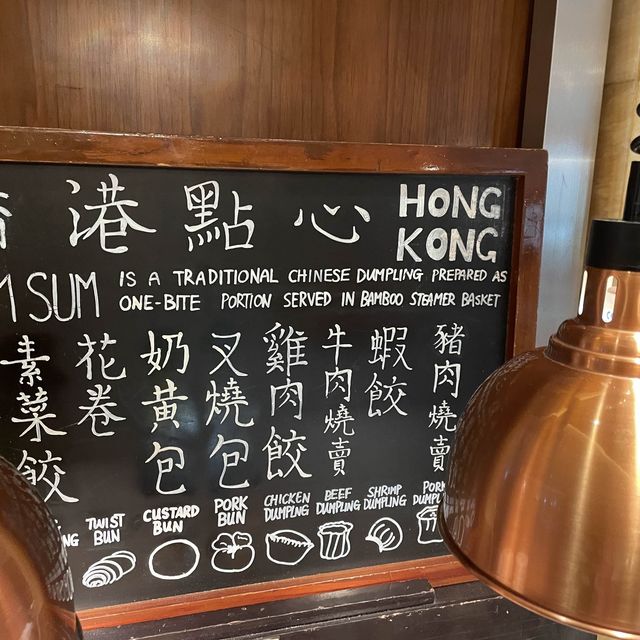 港點心
HONG
KONG
SUM
IS A TRADITIONAL CHINESE DUMPLING PREPARED AS
ONE-BITE PORTION SERVED IN BAMBOO STEAMER BASKET
素菜餃
花卷
奶黃包
叉燒包
雞肉餃
牛肉燒賣
蝦餃
豬肉燒賣
TWIST
BUN
CUSTARD
BUN
PORK
BUN
CHICKEN
DUMPLING
BEEF
DUMPLING
SHRIMP
DUMPLING
PORK